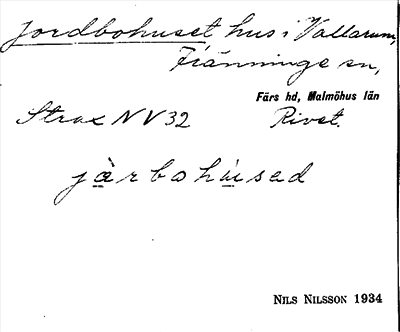 Jordbohuset hus i Vallarum,
Fränninge sn,
Färs hd, Malmöhus län
Strax NV 32 Rivet.
jàrbohúsed
NILS NILSSON 1934